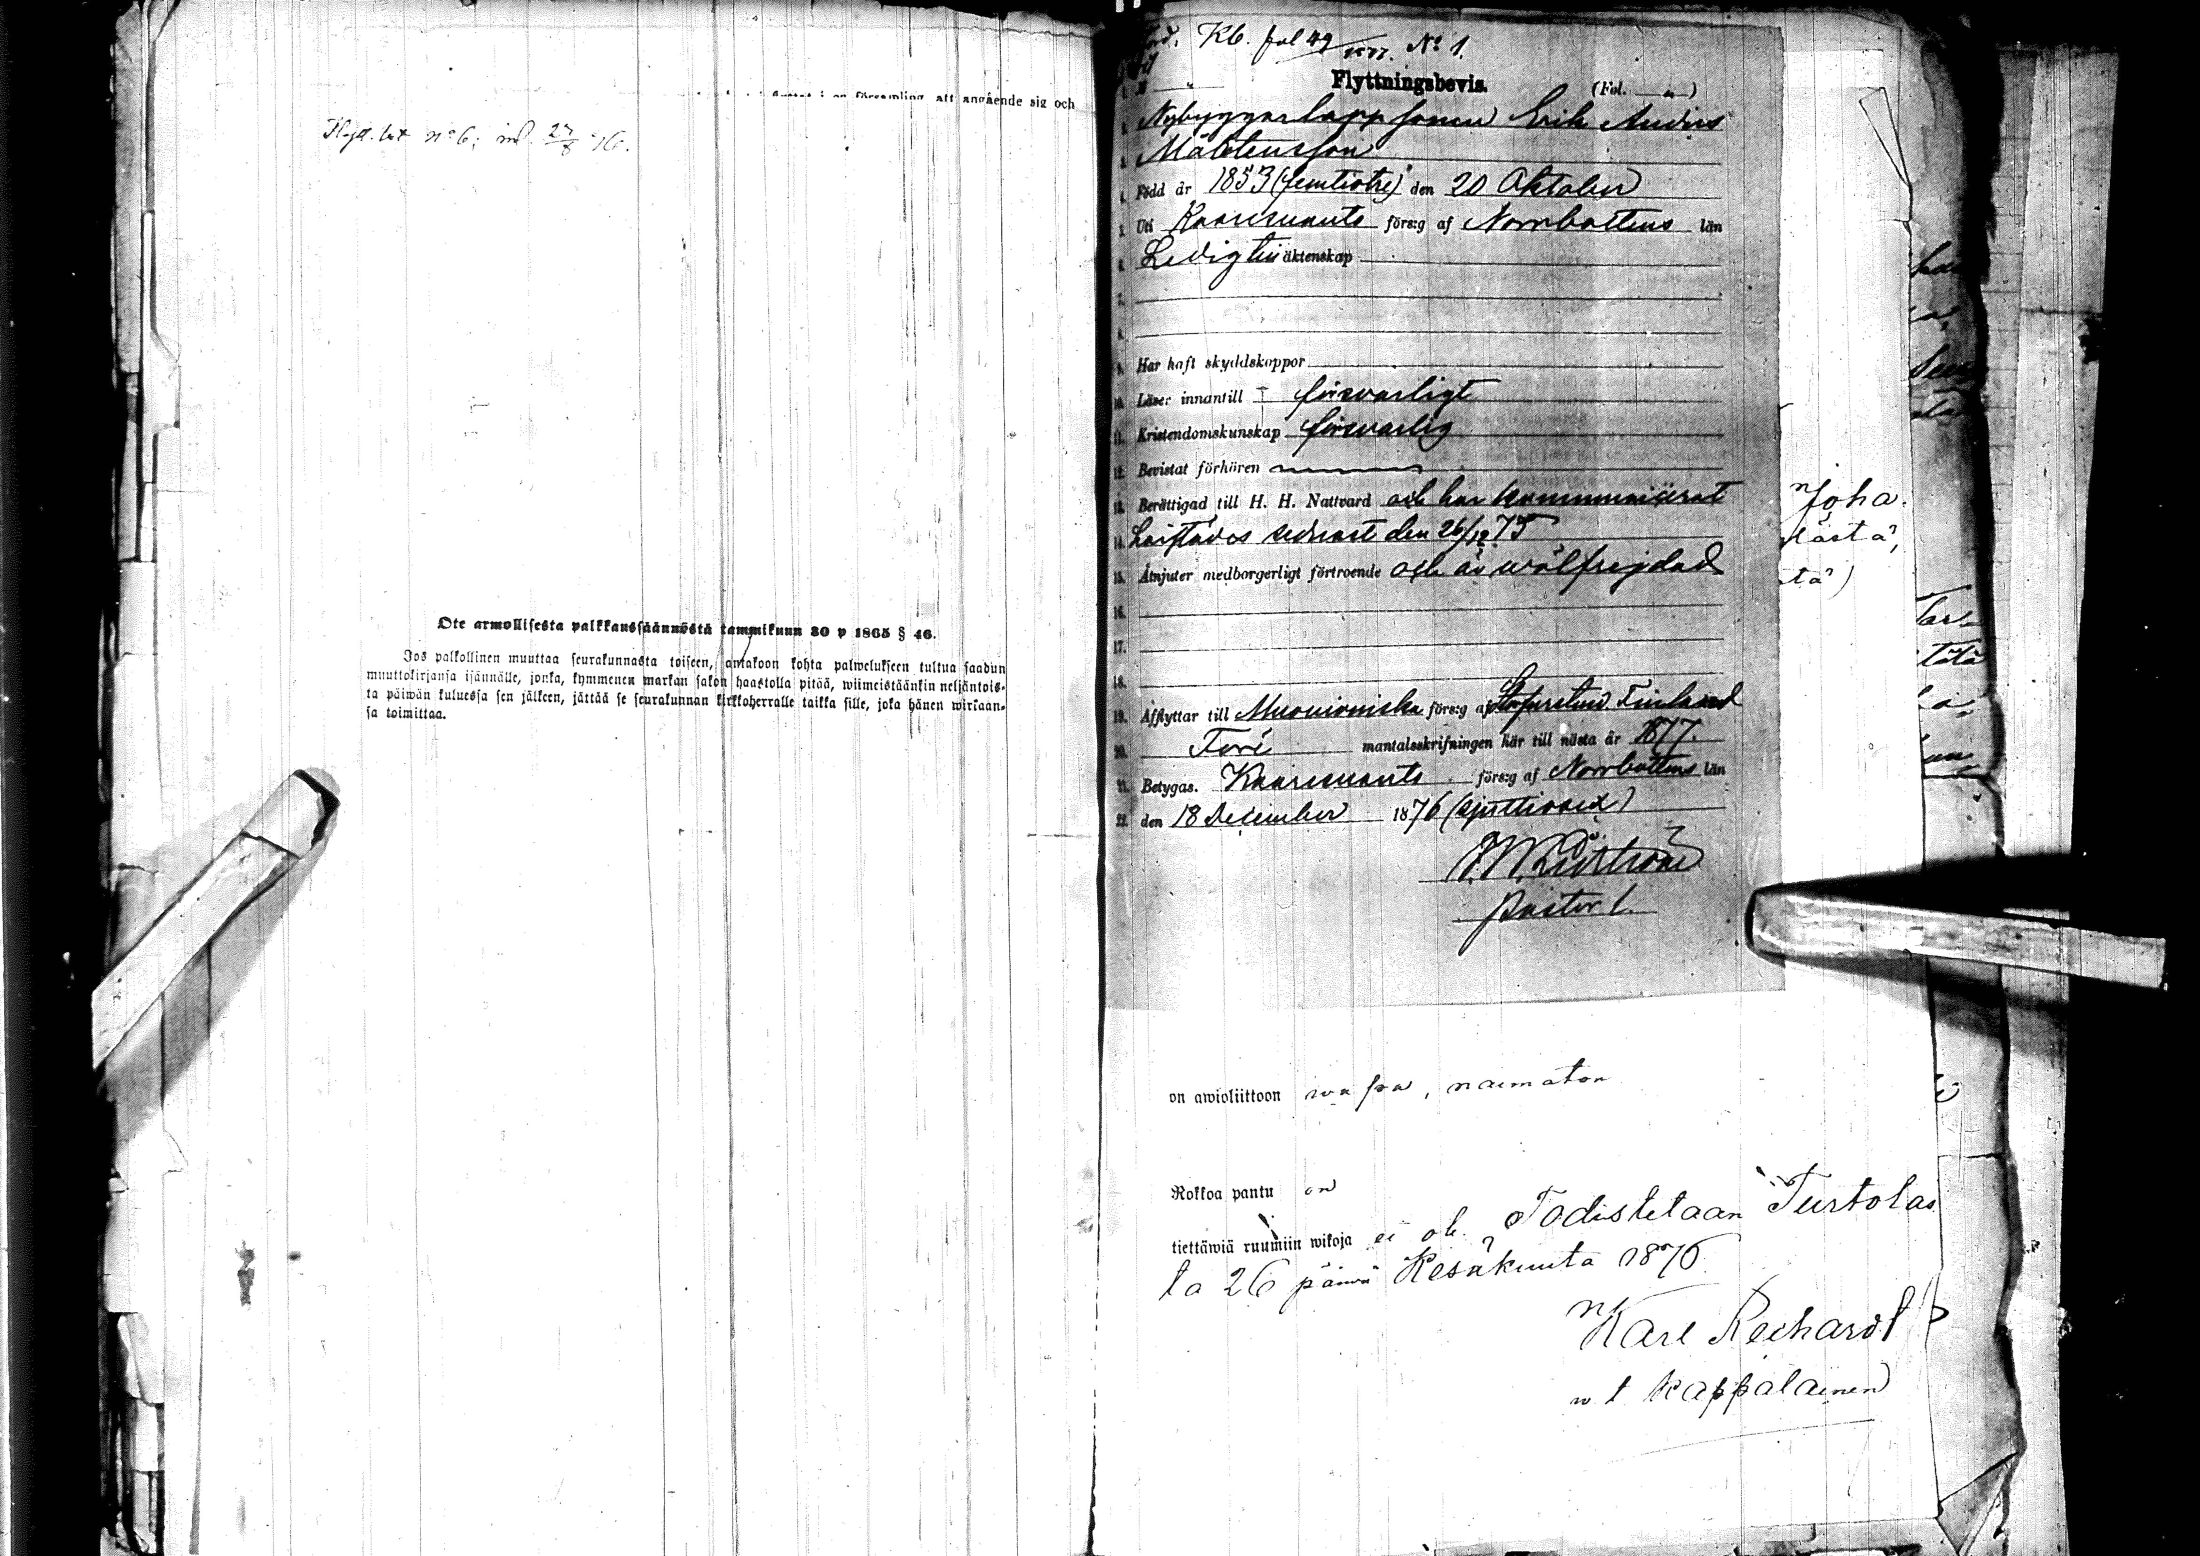 församling, att angående sig och
Flytt. bet. no 6; inl. 27/8 76.
Ote armollisesta palkkaussäännöstä tammikuun 30 p 1865 § 46.
Jos palkollinen muuttaa seurakunnasta toiseen, antakoon kohta palwelukseen tultua saadun
muuttokirjansa isännälle, jonka, kymmenen markan sakon haastolla pitää, wiimeistäänkin neljäntois-
ta päiwän kuluessa sen jälkeen, jättää se seurakunnan kirkkoherralle taikka sille, joka hänen wirkaan-
sa toimittaa.
Kb. fol 49 1877. No 1.
Flyttningsbevis. (Fol. )
Nybyggarlappsonen Erik Andris
Mårtensson
4. Född år 1853 (femtiotre) den 20 Oktober
5. Uti Karesuanto förs:g af Norrbottens län
6. Ledig till äktenskap
7.
8.
9. Har haft skyddskoppor
10. Läser innantill försvarligt
11. Kristendomskunskap försvarlig
12. Bevistat förhören
13. Berättigad till H. H. Nattvard och har kommunicerat
14. sednast den 26/12 75
15. Åtnjuter medborgerligt förtroende och är wälfrejdad
16.
17.
18.
19. Afflyttar till Muonioniska förs:g af Storfurstend Finland
20. Före mantalsskrifningen här till nästa år 1877.
21. Betygas. Karesuanto förs:g af Norrbottens län
22. den 18 December 1876 (sjuttiosex)
Pastor l.
Joha
on awioliittoon wapa, naimaton
Rokkoa pantu on
tiettäwiä ruumiin wikoja ei ole. Todistetaan Turtolas
ta 26 päiwä Kesäkuuta 1876
Karl Rechardt
w t Kappalainen